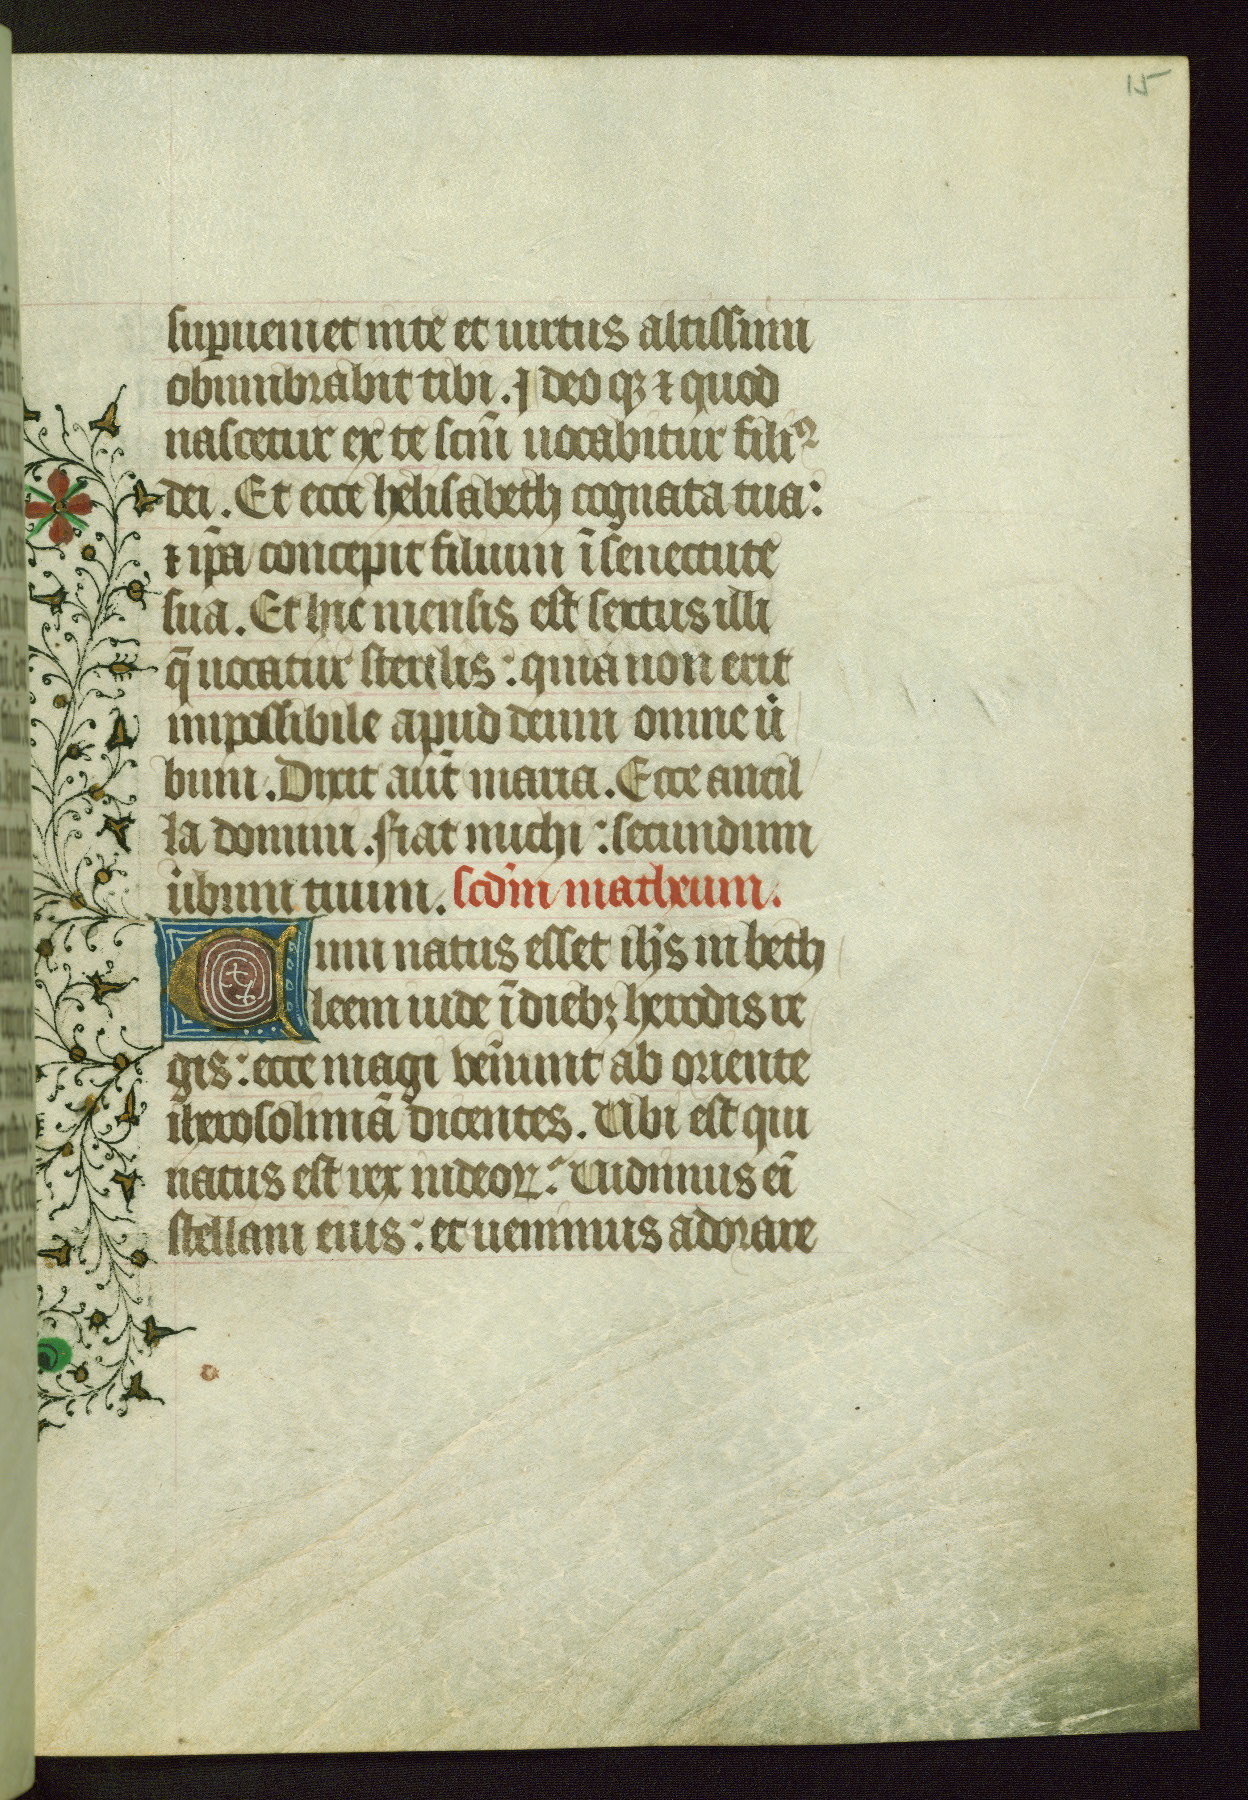 15
sup̲ueniet inte et uirtus altissimi
obumbrabit tibi. Ideo qꝫ ⁊ quod
nascetur ex te scm̄ uocabitur filiꝰ
dei. Et ecce helisabeth cognata tua:
⁊ ip̄a concepit filium ī senectute
sua. Et hic mensis est sextus illi
q̄ uocatur sterilis: quia non erit
impossibile apud deum omne u̇
bum. Dixit aut̄ maria. Ecce ancil
la domini. fiat michi: secundum
u̇bum tuum. scd̄m matheum.
Cum natus esset ih̄s in beth
leem iude ī diebꝫ herodis re
gis: ecce magi ven̄unt ab oriente
iherosolimā dicentes. Ubi est qui
natus est rex iudeoꝝ: Uidimus ei̅
stellam eius: et uenimus adorare